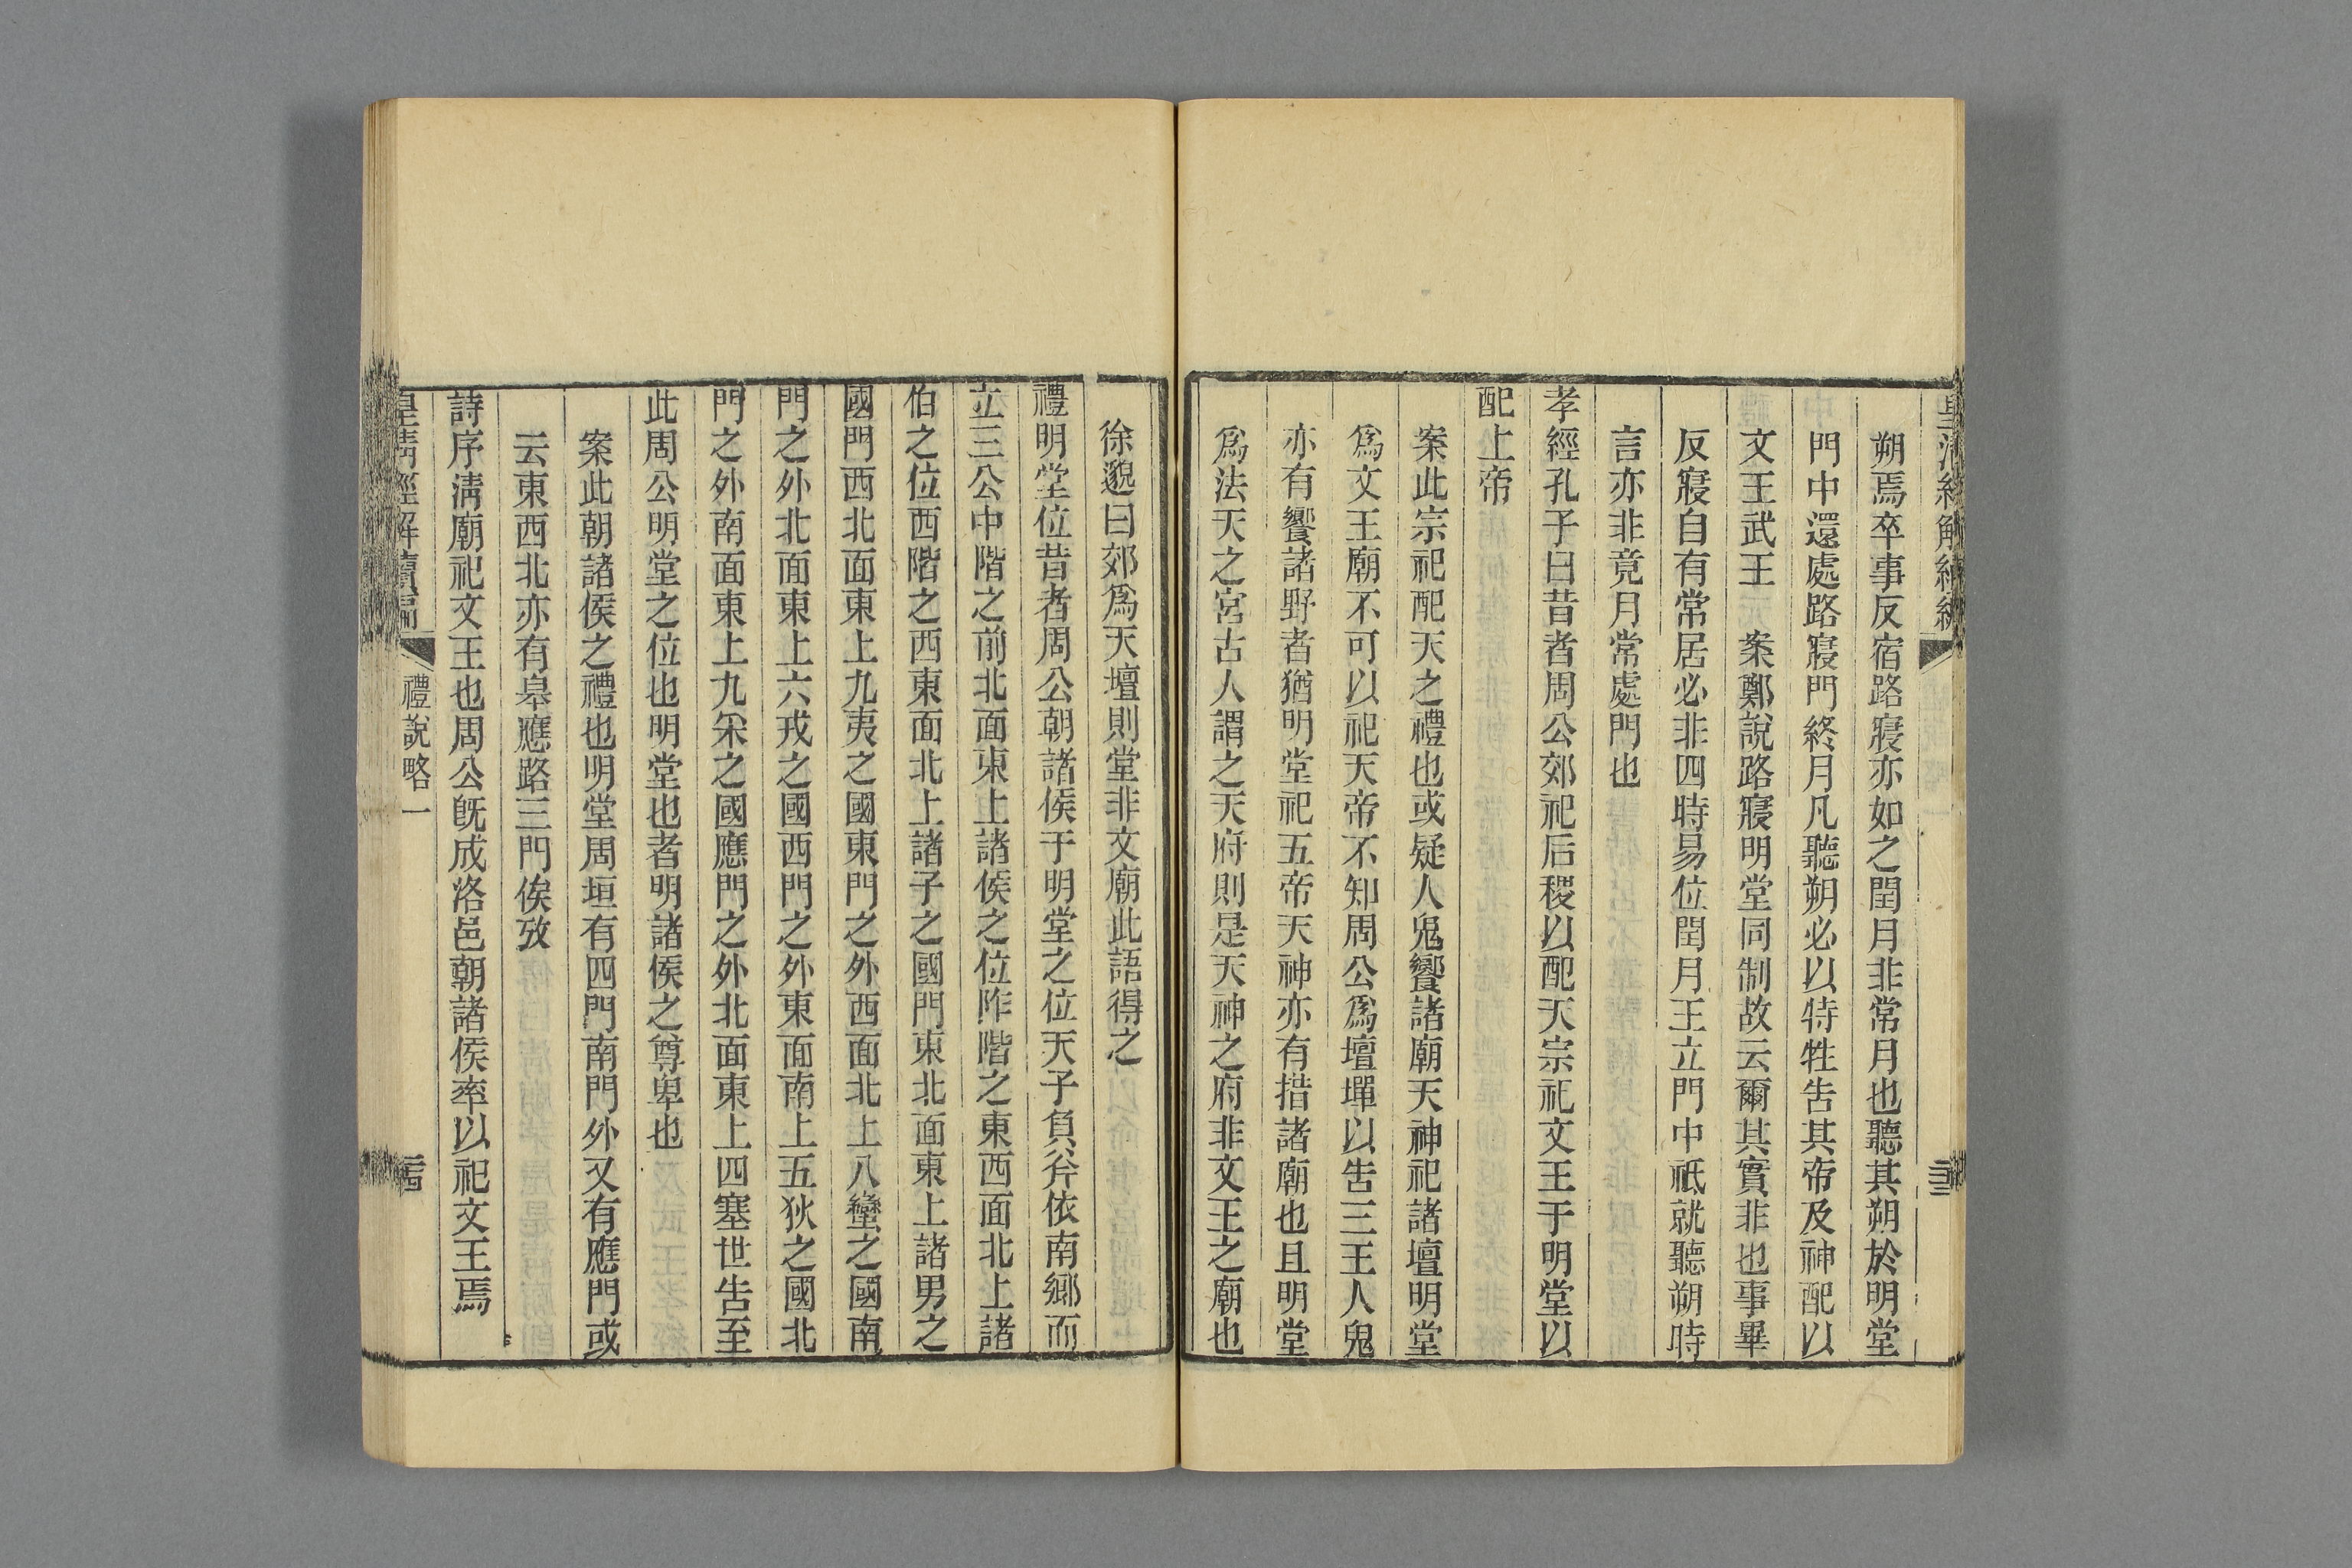 朔焉卒事反宿路寢亦如之閏月非常月也聽其朔於明堂
門中還處路寢門終月凡聽朔必以特牲告其帝及神配以
文王武王 案鄭說路寢明堂同制故云爾其實非也事畢
反寢自有常居必非四時易位閏月王立門中祇就聽朔時
言亦非竟月常處門也
孝經孔子曰昔者周公郊祀后稷以配天宗祀文王于明堂以
配上帝
案此宗祀配天之禮也或疑人鬼饗諸廟天神祀諸壇明堂
爲文王廟不可以祀天帝不知周公爲壇墠以告三王人鬼
亦有饗諸野者猶明堂祀五帝天神亦有措諸廟也且明堂
爲法天之宮古人謂之天府則是天神之府非文王之廟也
徐邈曰郊爲天壇則堂非文廟此語得之
禮明堂位昔者周公朝諸侯于明堂之位天子負斧依南鄉而
立三公中階之前北面東上諸侯之位阼階之東西面北上諸
伯之位西階之西東面北上諸子之國門東北面東上諸男之
國門西北面東上九夷之國東門之外西面北上八蠻之國南
門之外北面東上六戎之國西門之外東面南上五狄之國北
門之外南面東上九采之國應門之外北面東上四塞世告至
此周公明堂之位也明堂也者明諸侯之尊卑也
案此朝諸侯之禮也明堂周垣有四門南門外又有應門或
云東西北亦有皋應路三門俟攷
詩序淸廟祀文王也周公旣成洛邑朝諸侯率以祀文王焉
皇淸經解續編
禮說略一